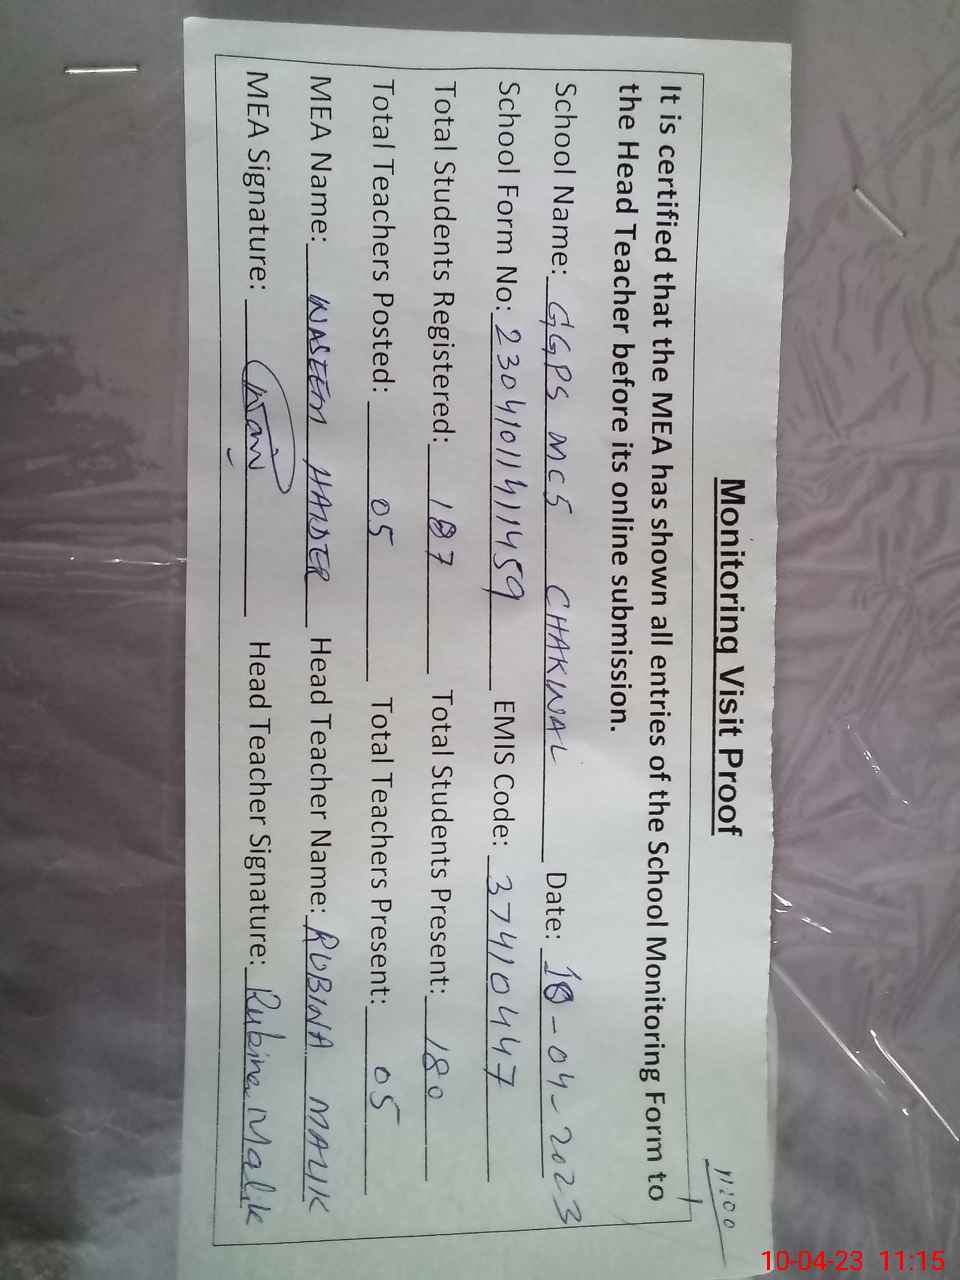 Monitoring Visit Proof
11:00
It is certified that the MEA has shown all entries of the School Monitoring Form to
the Head Teacher before its online submission.
School Name: GGPS MC5 CHAKWAL Date: 10-04-2023
School Form No: 2304101141459 EMIS Code: 37410447
Total Students Registered: 187 Total Students Present: 180
Total Teachers Posted: 05 Total Teachers Present: 05
MEA Name: WASEEM HAIDER Head Teacher Name: RUBINA MALIK
MEA Signature: Head Teacher Signature: Rubina Malik
10-04-23 11:15